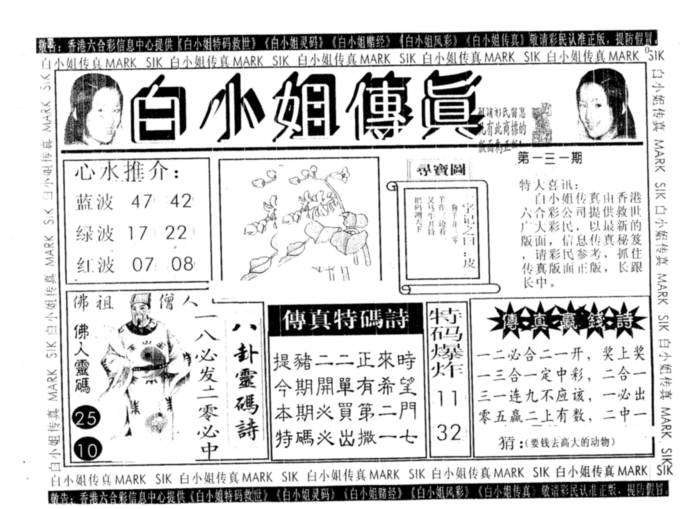 敬告：香港六合彩信息中心提供《白小姐特码救世》《白小姐灵码》《白小姐赌经》《白小姐风彩》《白小姐传真》敬请彩民认准正版，提防假冒。
白小姐传真 MARK SIK 白小姐传真 MARK SIK 白小姐传真 MARK SIK 白小姐传真 MARK SIK 白小姐传真 MARK SIK
白小姐傳眞
第一三一期
心水推介：
蓝波 47 42
绿波 17 22
红波 07 08
尋寶圖
一字记之曰：皮
特大喜讯：
白小姐传真由香港
六合彩公司提供救世
广大彩民，以最新的
版面，信息传真秘笈
，请彩民参考，抓住
传真版面正版，长跟
长中。
佛祖 僧人
佛人靈碼
25
10
一八必发二零必中
八卦靈碼詩
傳真特碼詩
提豬二二正來時
今期開單有希望
本期必買第二門
特碼必出撒一七
特码爆炸
11
32
傳真贏钱詩
一二必合二一开，奖上奖
一三合一定中彩，二合一
三一连九不应该，一必出
零五赢二上有数，二中一
猜：(要钱去高大的动物)
白小姐传真 MARK SIK 白小姐传真 MARK SIK 白小姐传真 MARK SIK 白小姐传真 MARK SIK 白小姐传真 MARK SIK
敬告：香港六合彩信息中心提供《白小姐特码救世》《白小姐灵码》《白小姐赌经》《白小姐风彩》《白小姐传真》敬请彩民认准正版，提防假冒。